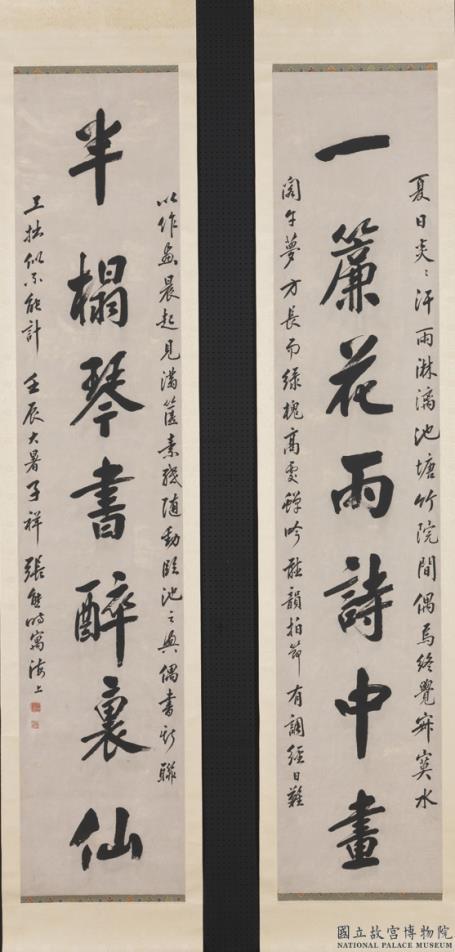 一簾花雨詩中畫
夏日炎炎汗雨淋漓池塘竹院間偶焉終覺寂寞水
閣午夢方長而綠槐高處蟬吟琵韻拍節有調經日難
半榻琴書醉裏仙
以作畫晨起見滿篋素牋隨動臨池之興偶書新聯
工拙似不能計 壬辰大暑子祥張熊時寓海上
國立故宮博物院
NATIONAL PALACE MUSEUM